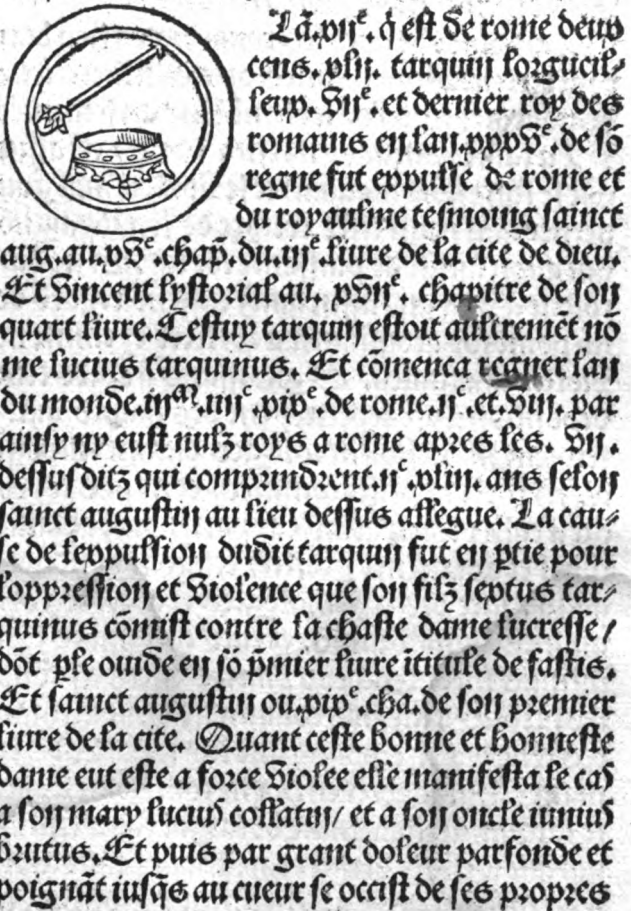 Lā.vijᵉ. q̄ est de rome deux
cens. xlij. tarquin lorgueil⸗
leux. Vijᵉ. et dernier roy des
romains en lan.xxxvᵉ. de sō
regne fut expulse de rome et
du royaulme tesmoing sainct
aug.au.xvᵉ.chap̄.du.iijᵉ.liure de la cite de dieu.
Et Vincent lystorial au. xvijᵉ. chapitre de son
quart liure. Cestuy tarquin estoit aultremēt nō
me lucius tarquinus. Et cōmenca regner lan
du monde.iiijᴹ.iiijᶜ.xixᵉ.de rome.ijᶜ.et.viij. par
ainsy ny eust nulz roys a rome apres les. vij.
dessusditz qui comprindrent.ijᶜ.xliij. ans selon
sainct augustin au lieu dessus allegue. La cau⸗
se de lexpulsion dudit tarquin fut en ꝑtie pour
loppression et violence que son filz sextus tar⸗
quinus cōmist contre la chaste dame lucresse /
dōt ꝑle ouide en sō p̄mier liure ītitule de fastis.
Et sainct augustin ou.xixᵉ.cha.de son premier
liure de la cite. Quant ceste bonne et honneste
dame eut este a force violee elle manifesta le cas
a son mary lucius collatin/ et a son oncle iunius
brutus. Et puis par grant doleur parfonde et
poignāt iusq̄s au cueur se occist de ses propres